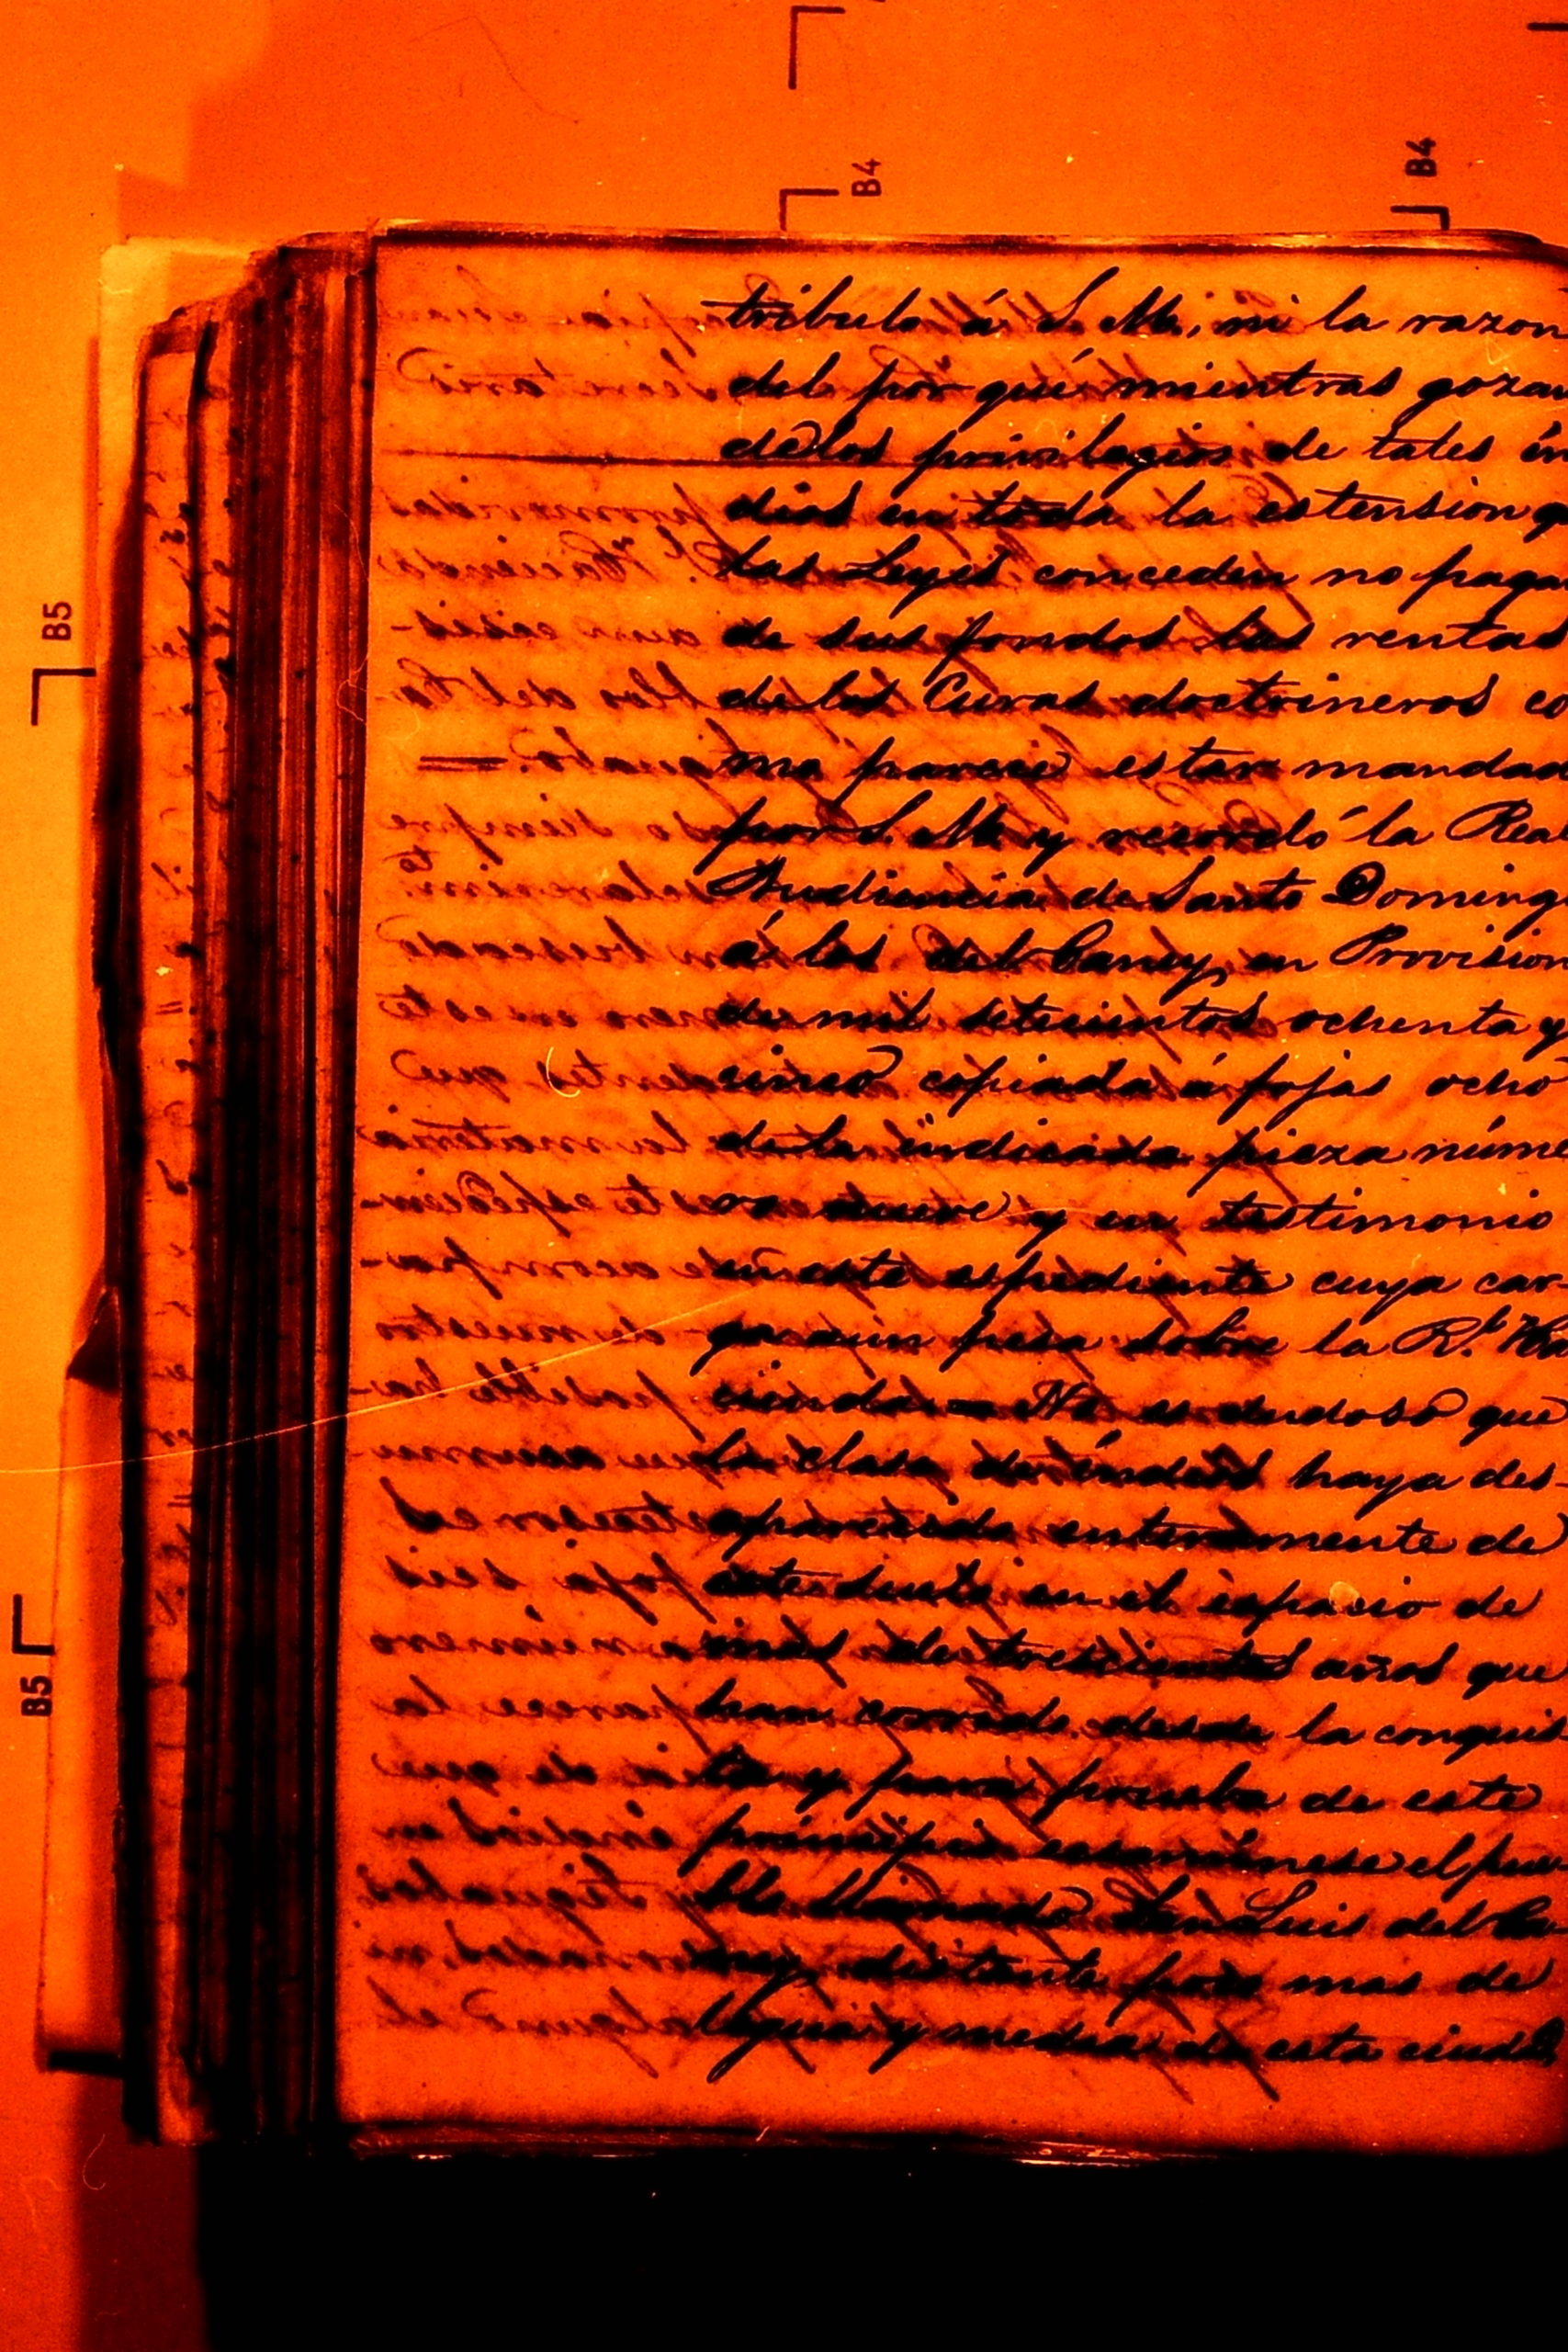 B4
B4
B5
B5
tributo á S. M., ni la razon
del por qué mientras gozan
de los privilegios de tales ín
dios en toda la estension q
las Leyes conceden no paga
de sus fondos las rentas
de los Curas doctrineros co
mo parece estar mandad
por S. M. y recordó la Rea
Audiencia de Santo Doming
á los del Caney, en Provision
de mil setecientos ochenta y
cinco copiada á fojas ocho
de la indicada pieza núme
ro nueve y en testimonio
en este espediente cuya car-
ga aún pesa sobre la Rl. Ha
cienda = No es dudoso que
la clase de índios haya des-
aparecido enteramente de
este suelo en el espacio de
mas de trescientos años que
han corrido desde la conquis
ta y para prueba de este
principio ecsamínese el pue
blo llamado San Luis del Ca
ney, distante poco mas de
legua y media de esta ciudd.